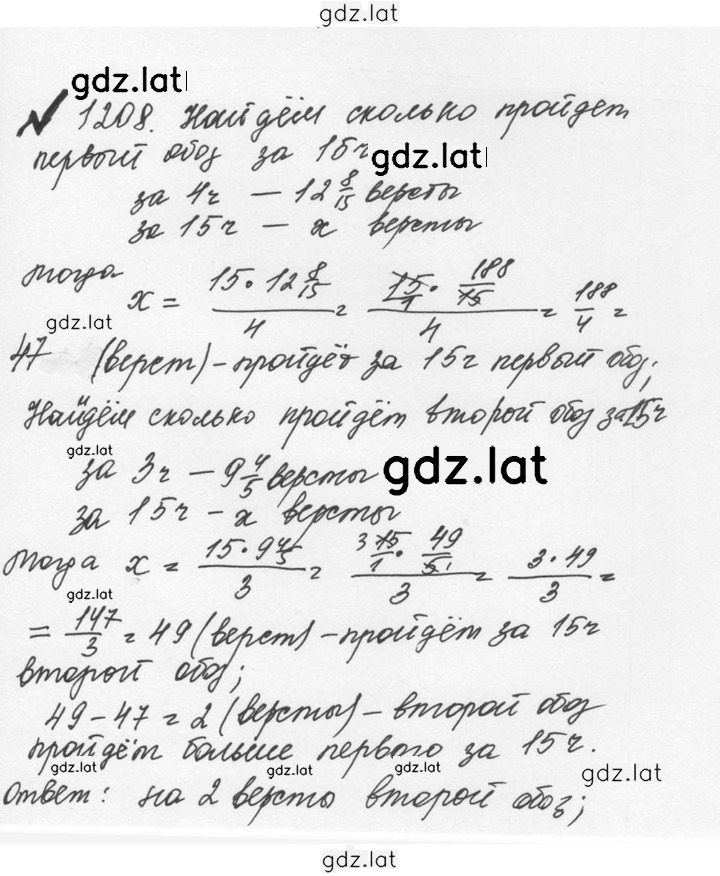 gdz.lat
gdz.lat
№ 1208. Найдём сколько пройдет
первый обоз за 15ч
gdz.lat
за 4ч – 12 8/15 версты
за 15ч – x версты
тогда x = (15 · 12 8/15)/4 = (15/1 · 188/15)/4 = 188/4 =
gdz.lat
47 (верст) – пройдёт за 15ч первый обоз;
Найдём сколько пройдёт второй обоз за 15ч
gdz.lat
за 3ч – 9 4/5 версты
gdz.lat
за 15ч – x версты
тогда x = (15 · 9 4/5)/3 = (3 15/1 · 49/5 1)/3 = (3 · 49)/3 =
gdz.lat
= 147/3 = 49 (верст) – пройдём за 15ч
второй обоз;
49 – 47 = 2 (версты) – второй обоз
пройдёт больше первого за 15ч.
gdz.lat gdz.lat gdz.lat gdz.lat
Ответ: на 2 версты второй обоз;
gdz.lat